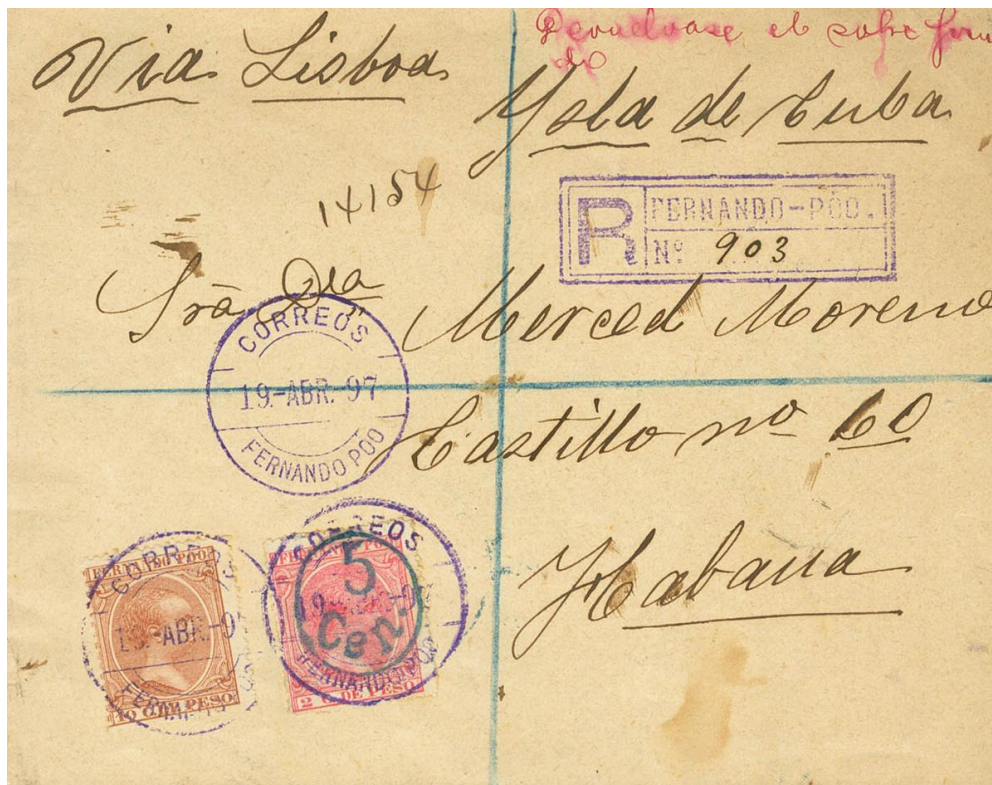 Devuelvase el sobre
Via Lisboa
Ysla de Cuba
14154
R FERNANDO-POO.
Nº 903
Sra Dña Merced Moreno
CORREOS
19.-ABR.-97
FERNANDO POO
Castillo nº 60
Habana
CORREOS
19.-ABR.-9
FERNANDO POO
10 C. DE PESO
CORREOS
5
Cen.
FERNANDO POO
2 C. DE PESO